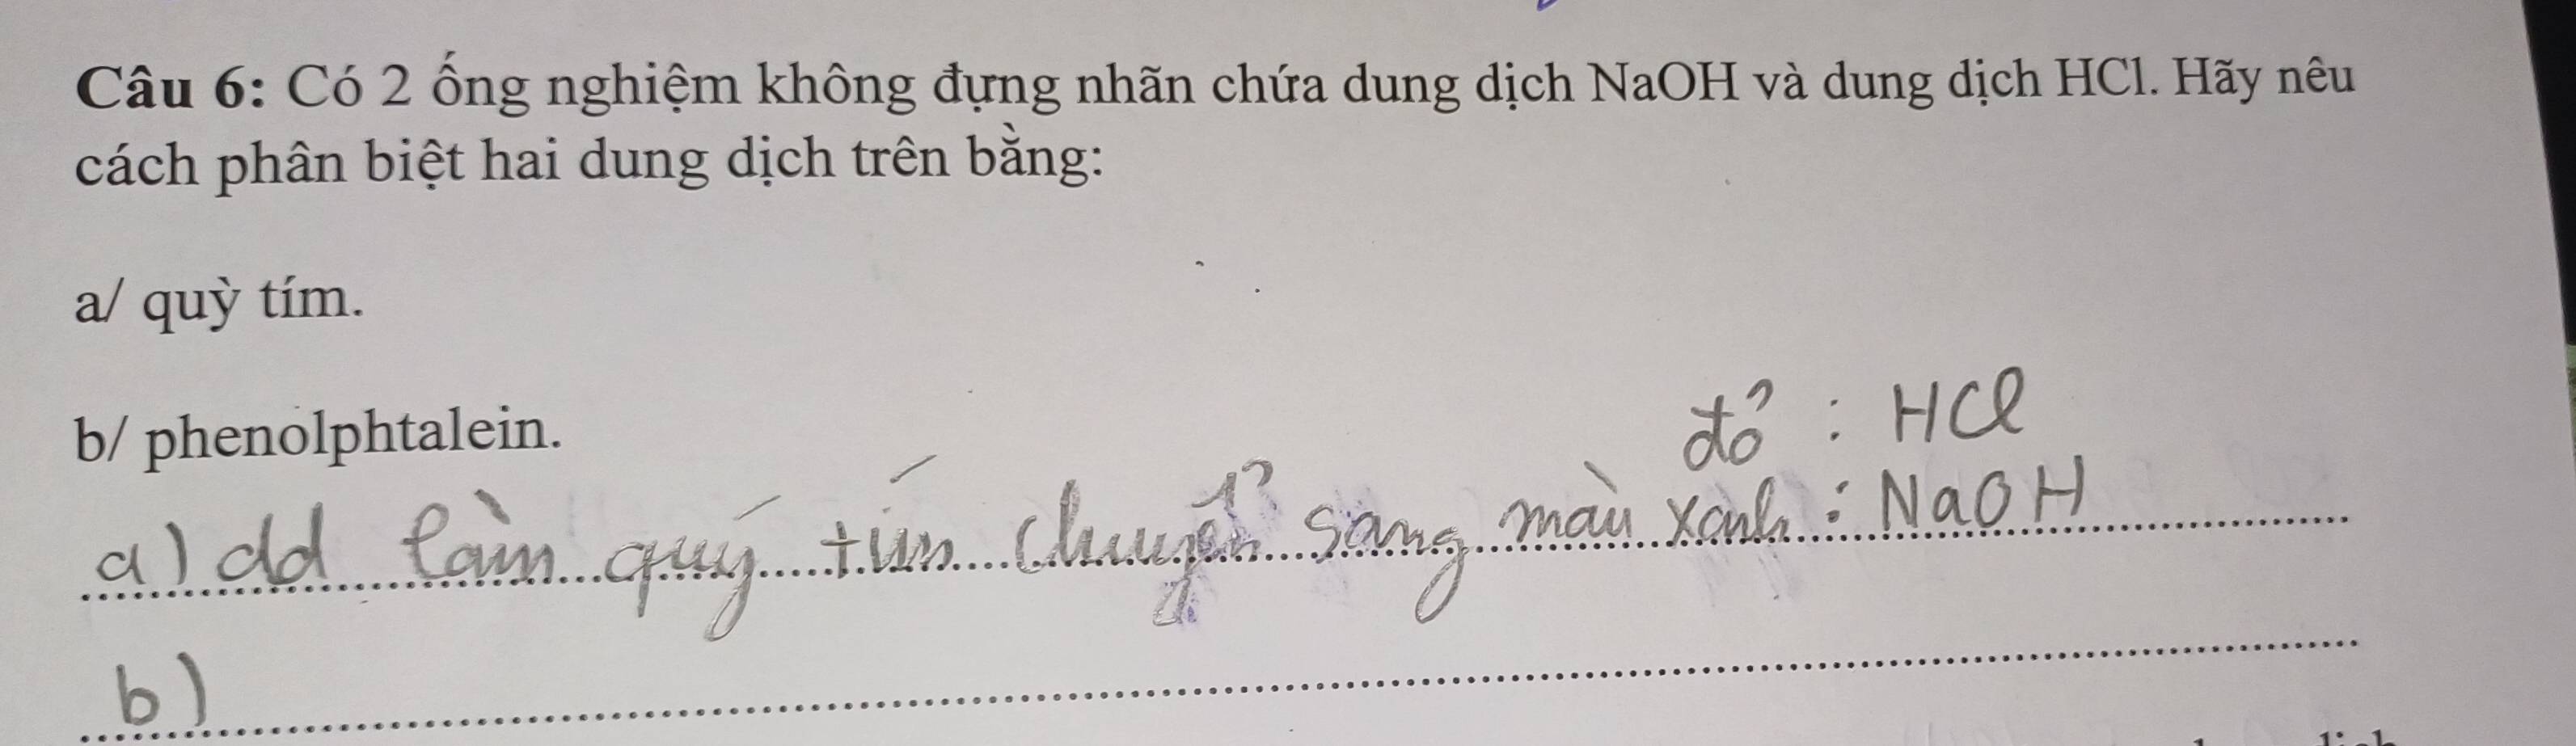 Câu 6: Có 2 ống nghiệm không đựng nhãn chứa dung dịch NaOH và dung dịch HCl. Hãy nêu
cách phân biệt hai dung dịch trên bằng:
a/ quỳ tím.
b/ phenolphtalein.
đỏ : HCl
a) dd làm quý tím chuyển sang màu xanh : NaOH
b)